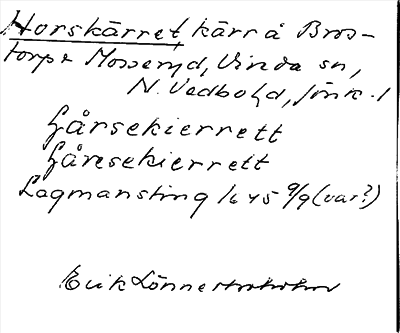 Horskärret, kärr å Bros-
torps Mosseryd, Vireda sn,
N. Vedbo hd, Jönk. l
hårsekierrett
håresekierrett
Lagmansting 1645 9/9 (var?)
Erik Lönnerholm